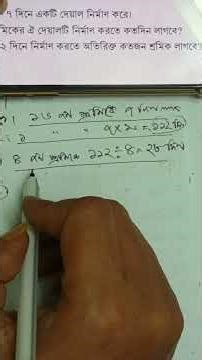 ৭ দিনে একটি দেয়াল নির্মাণ করে।
মিকের ঐ দেয়ালটি নির্মাণ করতে কতদিন লাগবে?
২ দিনে নির্মাণ করতে অতিরিক্ত কতজন শ্রমিক লাগবে?
১৬ জন শ্রমিকে ৭ দিন
১ " " ৭ × ১৬ = ১১২ দিন
৪ জন শ্রমিকে ১১২ ÷ ৪ = ২৮ দিন